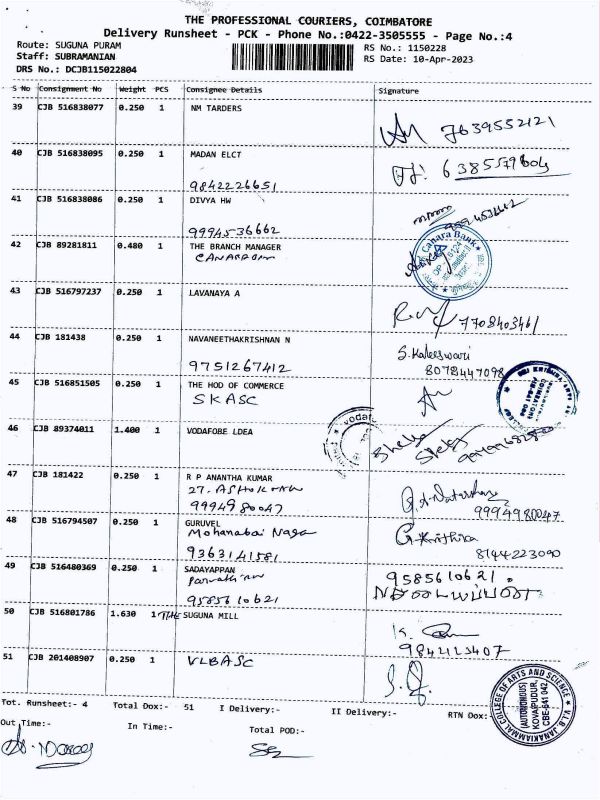 THE PROFESSIONAL COURIERS, COIMBATORE
Delivery Runsheet - PCK - Phone No.:0422-3505555 - Page No.:4
Route: SUGUNA PURAM
RS No.: 1150228
Staff: SUBRAMANIAN
RS Date: 10-Apr-2023
DRS No.: DCJB115022804
S No Consignment No Weight PCS Consignee Details Signature
39 CJB 516838077 0.250 1 NM TARDERS
7639552121
40 CJB 516838095 0.250 1 MADAN ELCT
9842226651
41 CJB 516838086 0.250 1 DIVYA HW
9994536662
42 CJB 89281811 0.480 1 THE BRANCH MANAGER
Canara Bank
43 CJB 516797237 0.250 1 LAVANAYA A
7708403461
44 CJB 181438 0.250 1 NAVANEETHAKRISHNAN N
S. Kaleeswari
9751267412 8078447098
45 CJB 516851505 0.250 1 THE HOD OF COMMERCE
SKASC
46 CJB 89374011 1.400 1 VODAFOBE LDEA
47 CJB 181422 0.250 1 R P ANANTHA KUMAR
9994980047 9994980047
48 CJB 516794507 0.250 1 GURUVEL
Mohanabai Naga
9363141581 8144223090
49 CJB 516480369 0.250 1 SADAYAPPAN
9585610621
9585610621
50 CJB 516801786 1.630 1 THE SUGUNA MILL
51 CJB 201408907 0.250 1 VLBASC
V.L.B. JANAKIAMMAL COLLEGE OF ARTS AND SCIENCE
(AUTONOMOUS)
KOVAIPUDUR,
CBE-641 042
Tot. Runsheet:- 4 Total Dox:- 51 I Delivery:- II Delivery:- RTN Dox:
Out Time:- In Time:- Total POD:-